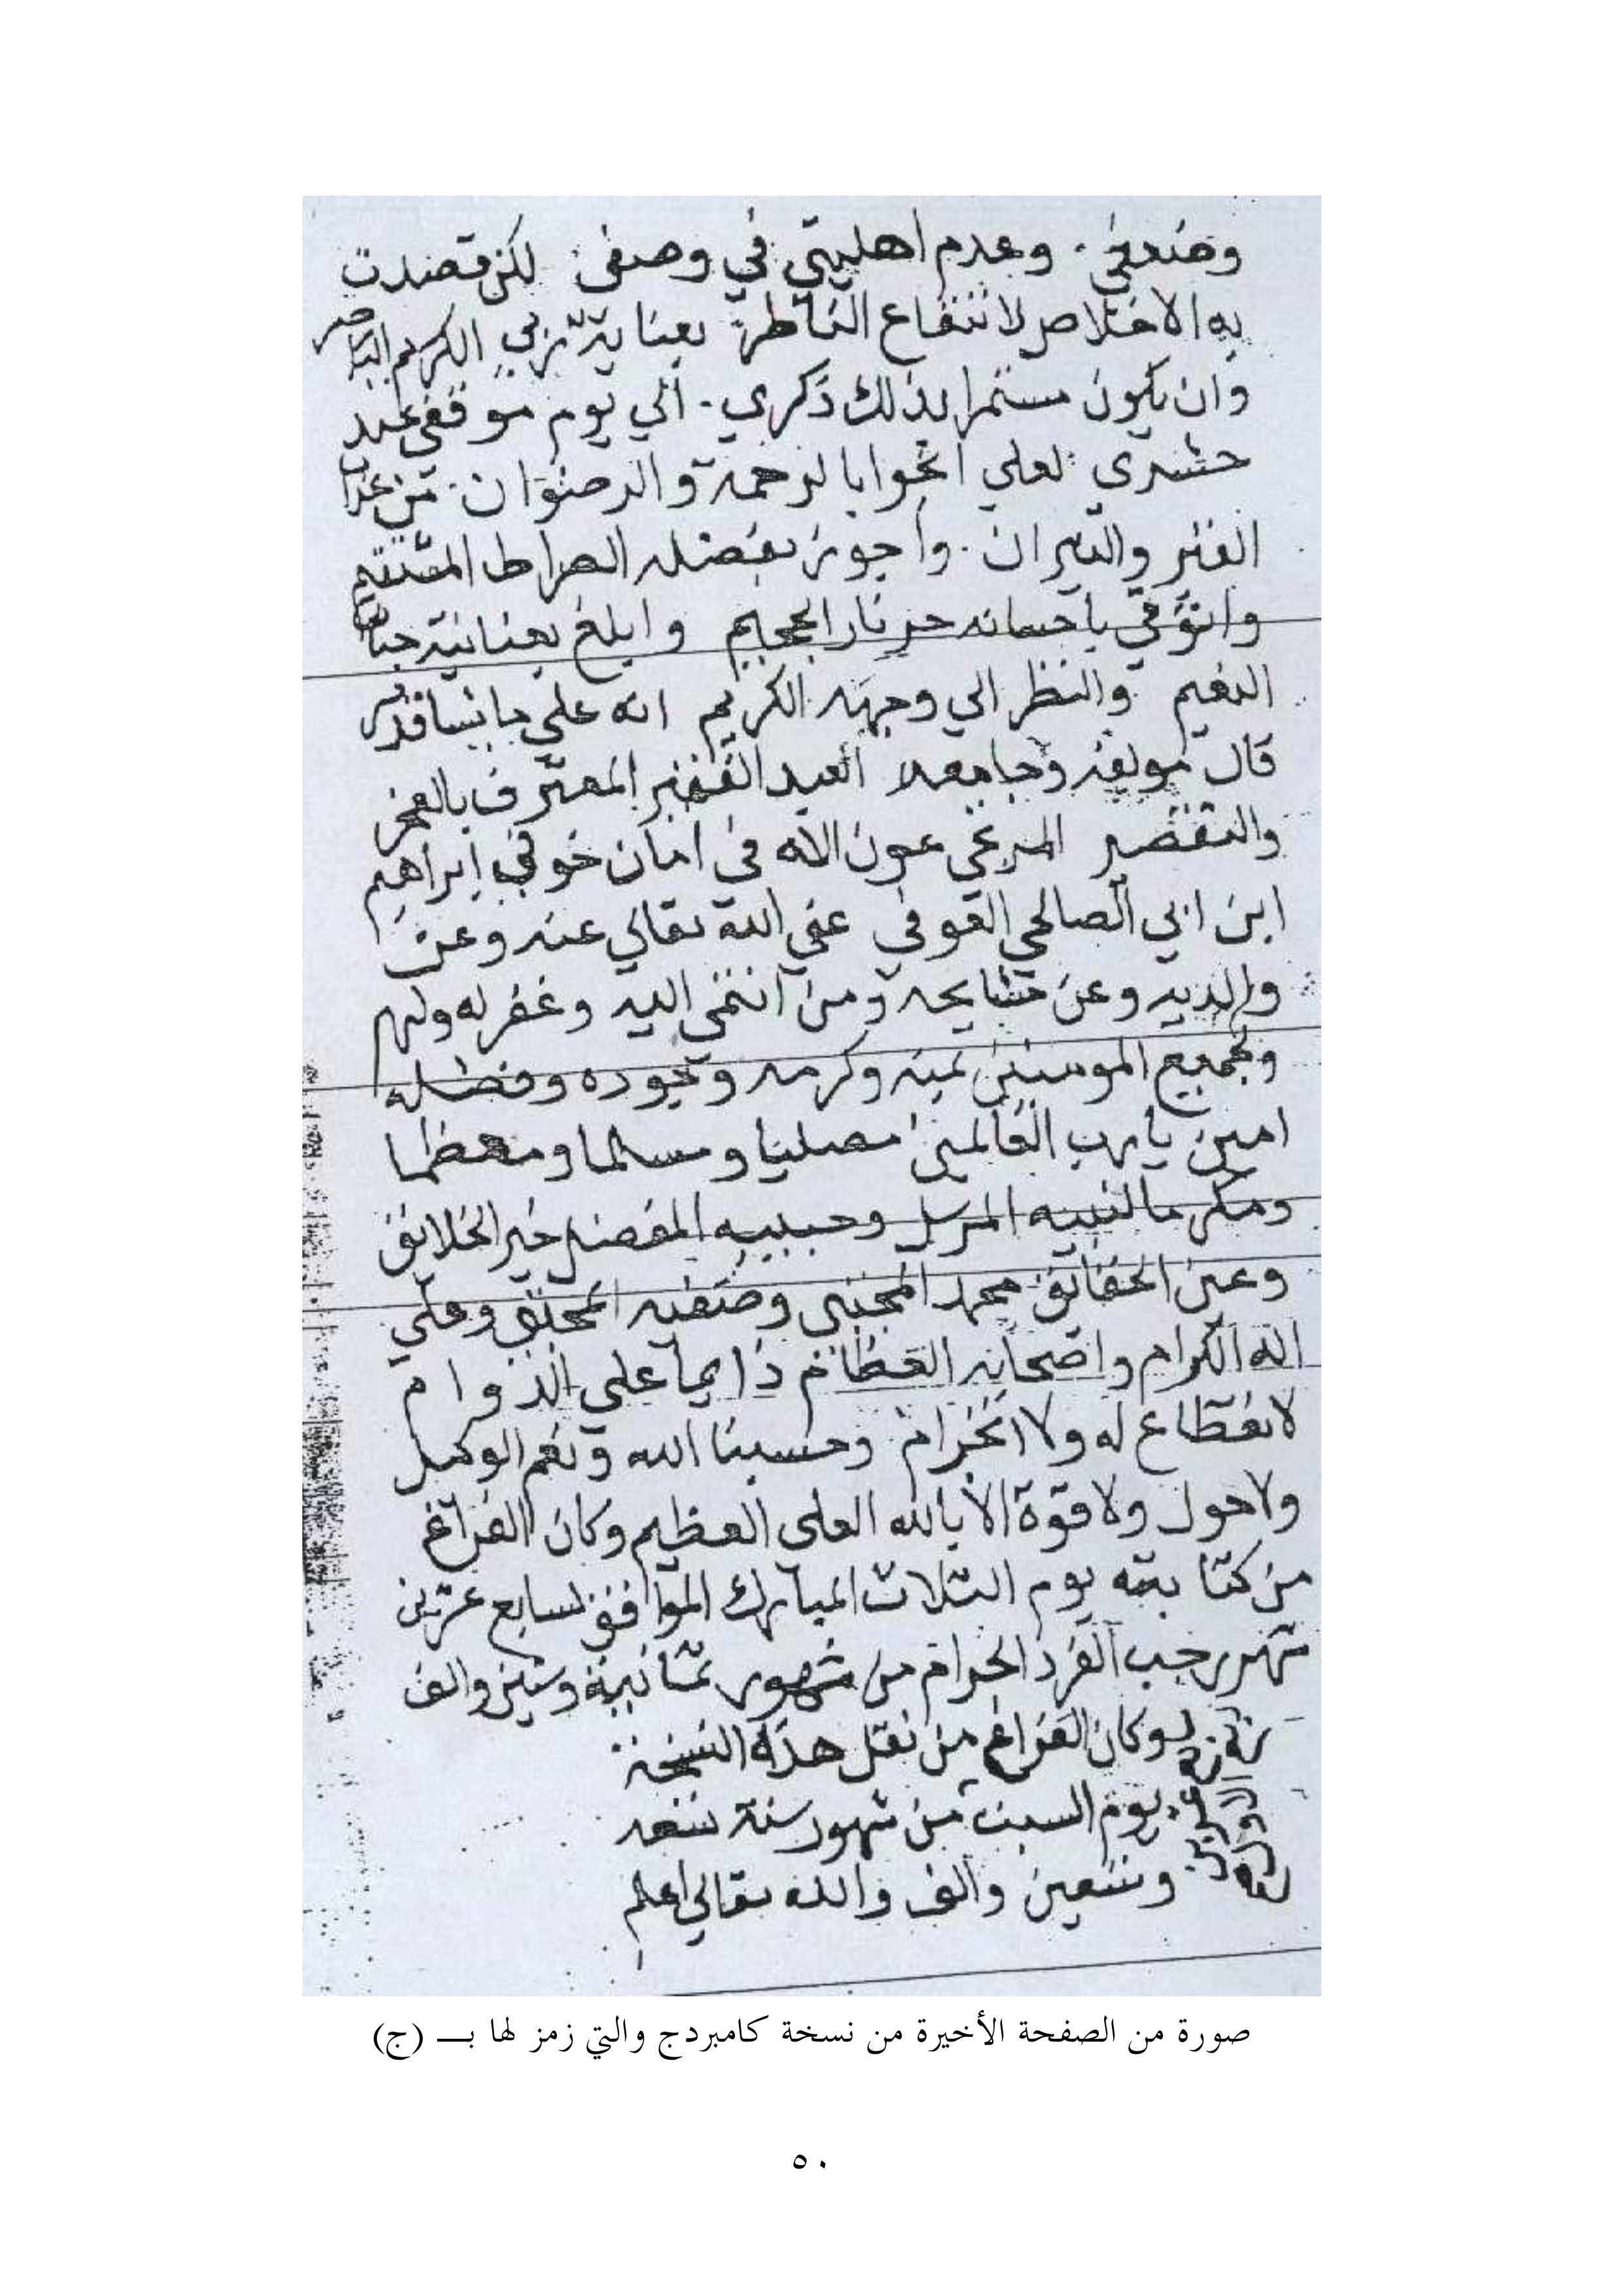 وضعفي . وعدم اهليتي في وصفي . لكن قصدت
به الاخلاص لانتفاع الناظر بعناية ربي الكريم الناصر
وان يكون مستمرا بذلك ذكري . الي يوم موقفي عند
حشري لعلي انجوا بالرحمة والرضوان . من عذاب
القبر والنيران . واجوز بفضله الصراط المستقيم
واتوقي باحسانه حر نار الجحيم وابلغ بعنايته جنات
النعيم والنظر الي وجهه الكريم انه علي ما يشا قدير
قال مولفه وجامعه العبد الفقير المعترف بالعجز
والتقصير المرتجي عون الاله في امان خوفه ابراهيم
ابن ابي الصالحي القوفي عفي الله تعالي عنه وعن
والديه وعن مشايخه ومن انتمي اليه وغفر له ولهم
ولجميع المومنين بمنه وكرمه وبجوده وفضله
امين يا رب العالمين مصليا ومسلما ومعظما
ومكرما لنبيه المرسل وحبيبه المفضل خير الخلايق
وعين الحقايق محمد المجتبي وصفيه وعلي
اله الكرام واصحابه العظام دايما علي الدوام
لانقطاع له ولا انخرام وحسبنا الله ونعم الوكيل
ولا حول ولا قوة الا بالله العلي العظيم وكان الفراغ
من كتابته يوم الثلاث المبارك الموافق لسابع عشرين
شهر رجب الفرد الحرام من شهور ثمانية وستين والف
وكان الفراغ من نقل هذه النسخة
يوم السبت من شهور سنة
وتسعين والف والله تعالي اعلم
صورة من الصفحة الأخيرة من نسخة كامبردج والتي زمز لها بـــ (ج)
٥٠